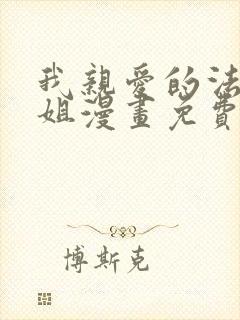 我親愛的法
姐漫畫免費
博斯克